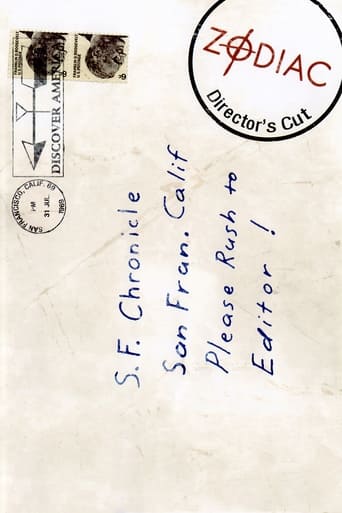 ZODIAC
Director's Cut
FRANKLIN D. ROOSEVELT
U.S. POSTAGE
6¢
FRANKLIN D. ROOSEVELT
U.S. POSTAGE
6¢
DISCOVER AMERICA
SAN FRANCISCO, CALIF.
PM
31 JUL
1969
S.F. Chronicle
San Fran. Calif
Please Rush to
Editor!